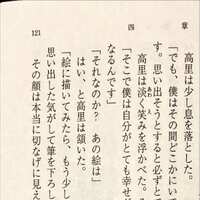 121 四 章
高里は少し息を落とした。
「でも、僕はその間どこかにいて
す。思い出そうとすると必ずと
高里は淡く笑みを浮かべた。
「そこで僕は自分がとても幸せ
なるんです」
「それなのか？　あの絵は」
はい、と高里は頷いた。
「絵に描いてみたら、もう少し
思い出した気がして筆を下ろし
その顔は本当に切なげに見え